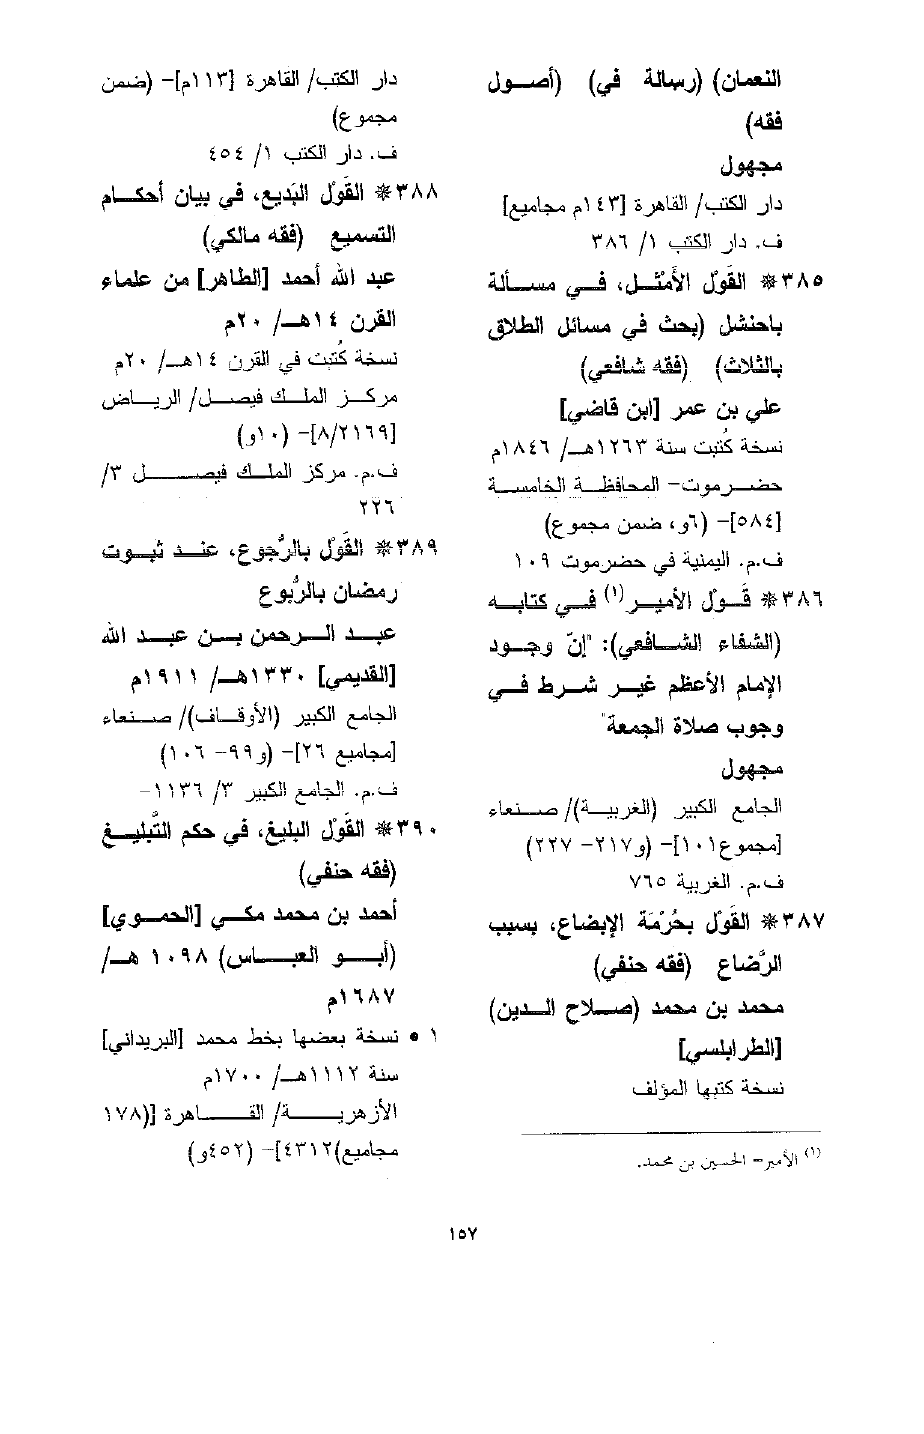 النعمان) (رسالة في) (أصول
فقه)
مجهول
دار الكتب/ القاهرة [١٤٣م مجاميع]
ف. دار الكتب ١/ ٣٨٦
٣٨٥* القَوْل الأَمْثل، في مسألة
باحنشل (بحث في مسائل الطلاق
بالثلاث) (فقه شافعي)
علي بن عمر [ابن قاضي]
نسخة كُتبت سنة ١٢٦٣هـ/ ١٨٤٦م
حضرموت- المحافظة الخامسة
[٥٨٤]- (٦و، ضمن مجموع)
ف.م. اليمنية في حضرموت ١٠٩
٣٨٦* قَوْل الأمير(١) في كتابه
(الشفاء الشافعي): "إنّ وجود
الإمام الأعظم غير شرط في
وجوب صلاة الجمعة"
مجهول
الجامع الكبير (الغربية)/ صنعاء
[مجموع١٠١]- (و٢١٧- ٢٢٧)
ف.م. الغربية ٧٦٥
٣٨٧* القَوْل بحُرْمَة الإبضاع، بسبب
الرَّضاع (فقه حنفي)
محمد بن محمد (صلاح الدين)
[الطرابلسي]
نسخة كتبها المؤلف
(١) الأمير= الحسين بن محمد.
دار الكتب/ القاهرة [١١٣م]- (ضمن
مجموع)
ف. دار الكتب ١/ ٤٥٤
٣٨٨* القَوْل البَديع، في بيان أحكام
التسميع (فقه مالكي)
عبد الله أحمد [الطاهر] من علماء
القرن ١٤هـ/ ٢٠م
نسخة كُتبت في القرن ١٤هـ/ ٢٠م
مركز الملك فيصل/ الرياض
[٨/٢١٦٩]- (١٠و)
ف.م. مركز الملك فيصل ٣/
٢٢٦
٣٨٩* القَوْل بالرُّجوع، عند ثبوت
رمضان بالرُّبوع
عبد الرحمن بن عبد الله
[القديمي] ١٣٣٠هـ/ ١٩١١م
الجامع الكبير (الأوقاف)/ صنعاء
[مجاميع ٢٦]- (و٩٩- ١٠٦)
ف.م. الجامع الكبير ٣/ ١١٣٦-
٣٩٠* القَوْل البليغ، في حكم التَّبليغ
(فقه حنفي)
أحمد بن محمد مكي [الحموي]
(أبو العباس) ١٠٩٨ هـ/
١٦٨٧م
١ • نسخة بعضها بخط محمد [البريداني]
سنة ١١١٢هـ/ ١٧٠٠م
الأزهرية/ القاهرة [(١٧٨
مجاميع)٤٣١٢]- (٤٥٢و)
١٥٧